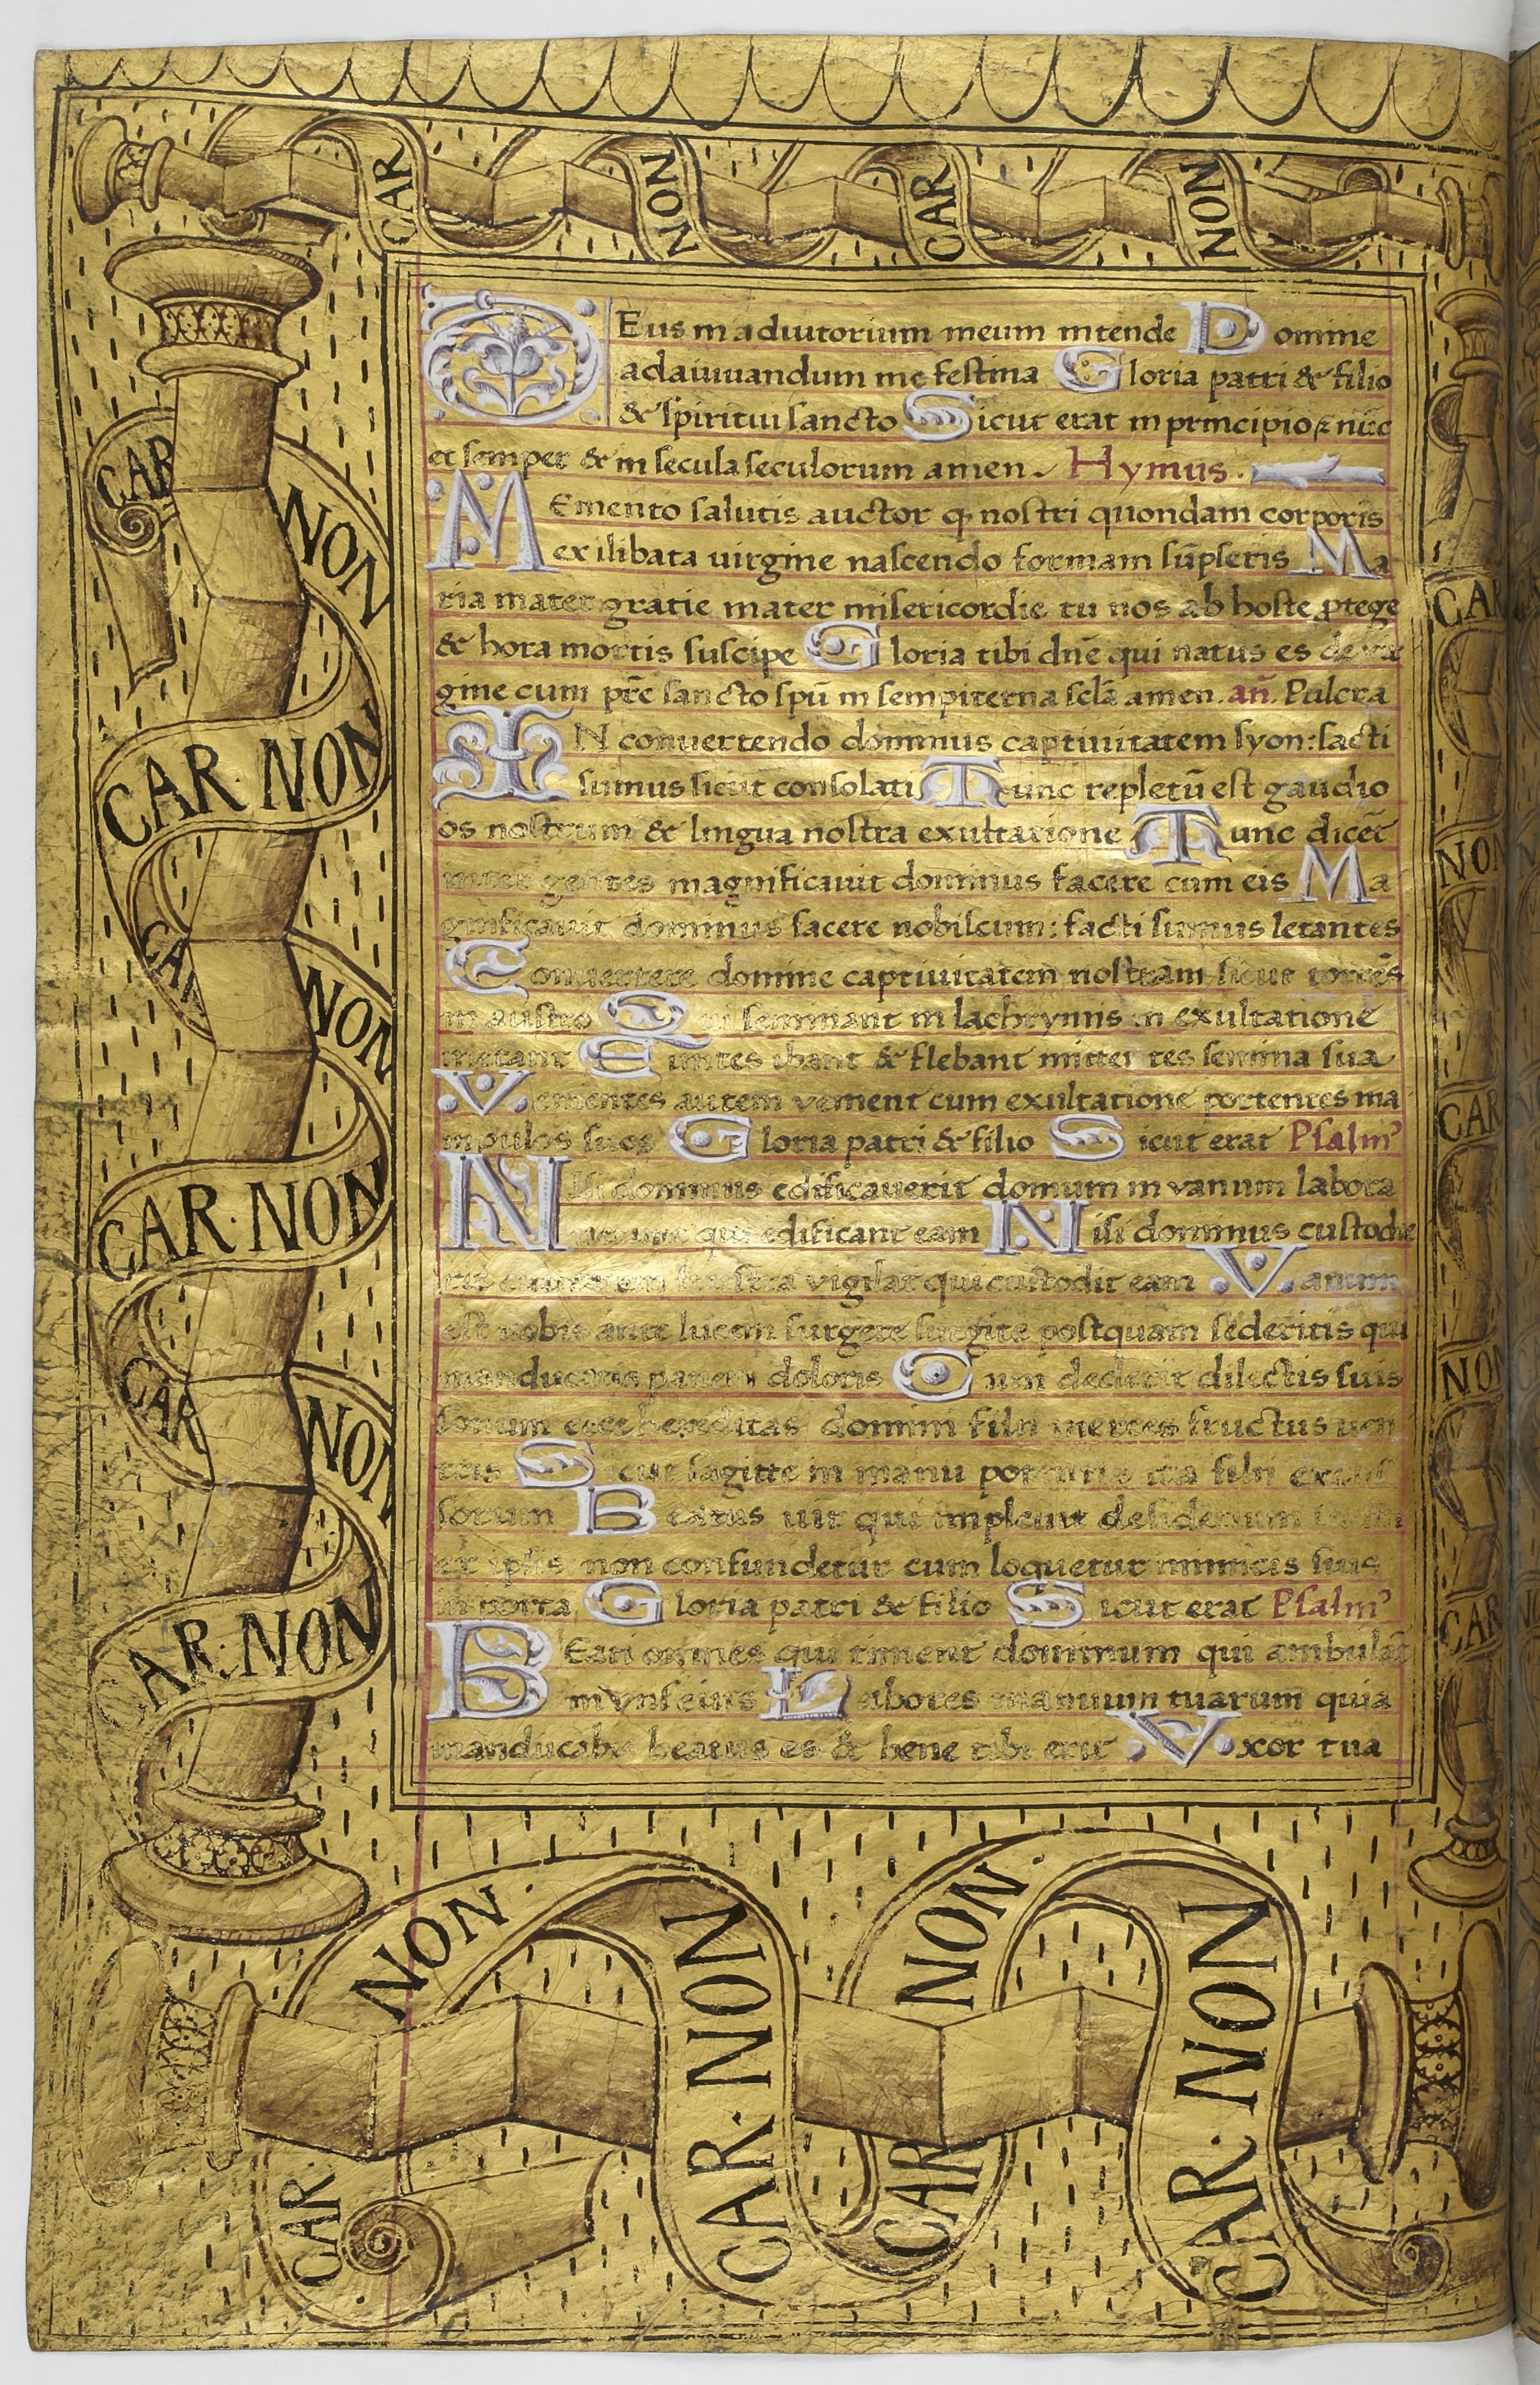 CAR NON CAR NON
DEus in adiutorium meum intende Domine
ad aiuuandum me festina Gloria patri & filio
& spiritui sancto Sicut erat in principio & nūc
et semper & in secula seculorum amen. Hymus.
MEmento salutis auctor ꝙ nostri quondam corporis
ex ilibata uirgine nascendo formam sūpseris Ma
ria mater gratie mater misericordie tu nos ab hoste ꝓtege
& hora mortis suscipe Gloria tibi dn̄e qui natus es de vir
gine cum pr̄e sancto spū in sempiterna sclā amen. an̄. Pulcra
IN conuertendo dominus captiuitatem syon: facti
sumus sicut consolati Tunc repletū est gaudio
os nostrum & lingua nostra exultatione Tunc dicēt
inter gentes magnificauit dominus facere cum eis Ma
gnificauit dominus facere nobiscum: facti sumus letantes
Conuertere domine captiuitatem nostram sicut torrēs
in austro Qui seminant in lachrymis in exultatione
metant Euntes ibant & flebant mittentes semina sua
Venientes autem venient cum exultatione portentes ma
nipulos suos Gloria patri & filio Sicut erat Psalm⁹
NIsi dominus edificauerit domum in vanum labora
qui edificant eam Nisi dominus custodie
rit ciuitatem frustra vigilat qui custodit eam Vanum
est vobis ante lucem surgere surgite postquam sederitis qui
manducatis panem doloris Cum dederit dilectis suis
sonum ecce hereditas domini filii merces fructus uen
tris Sicut sagitte in manu potentis ita filii excus
sorum Beatus uir qui impleuit desiderium
ex ipsis non confundetur cum loquetur inimicis suis
in porta Gloria patri & filio Sicut erat Psalm⁹
BEati omnes qui timent dominum qui ambulāt
in viis eius Labores manuum tuarum quia
manducabis beatus es & bene tibi erit Vxor tua
CAR NON
CAR·NON
CAR NON
CAR·NON
CAR NON
AR·NON
CAR
NON
CAR
NON
CAR
NON·
CAR·NON
NON·
CAR·NON
CAR·
CAR